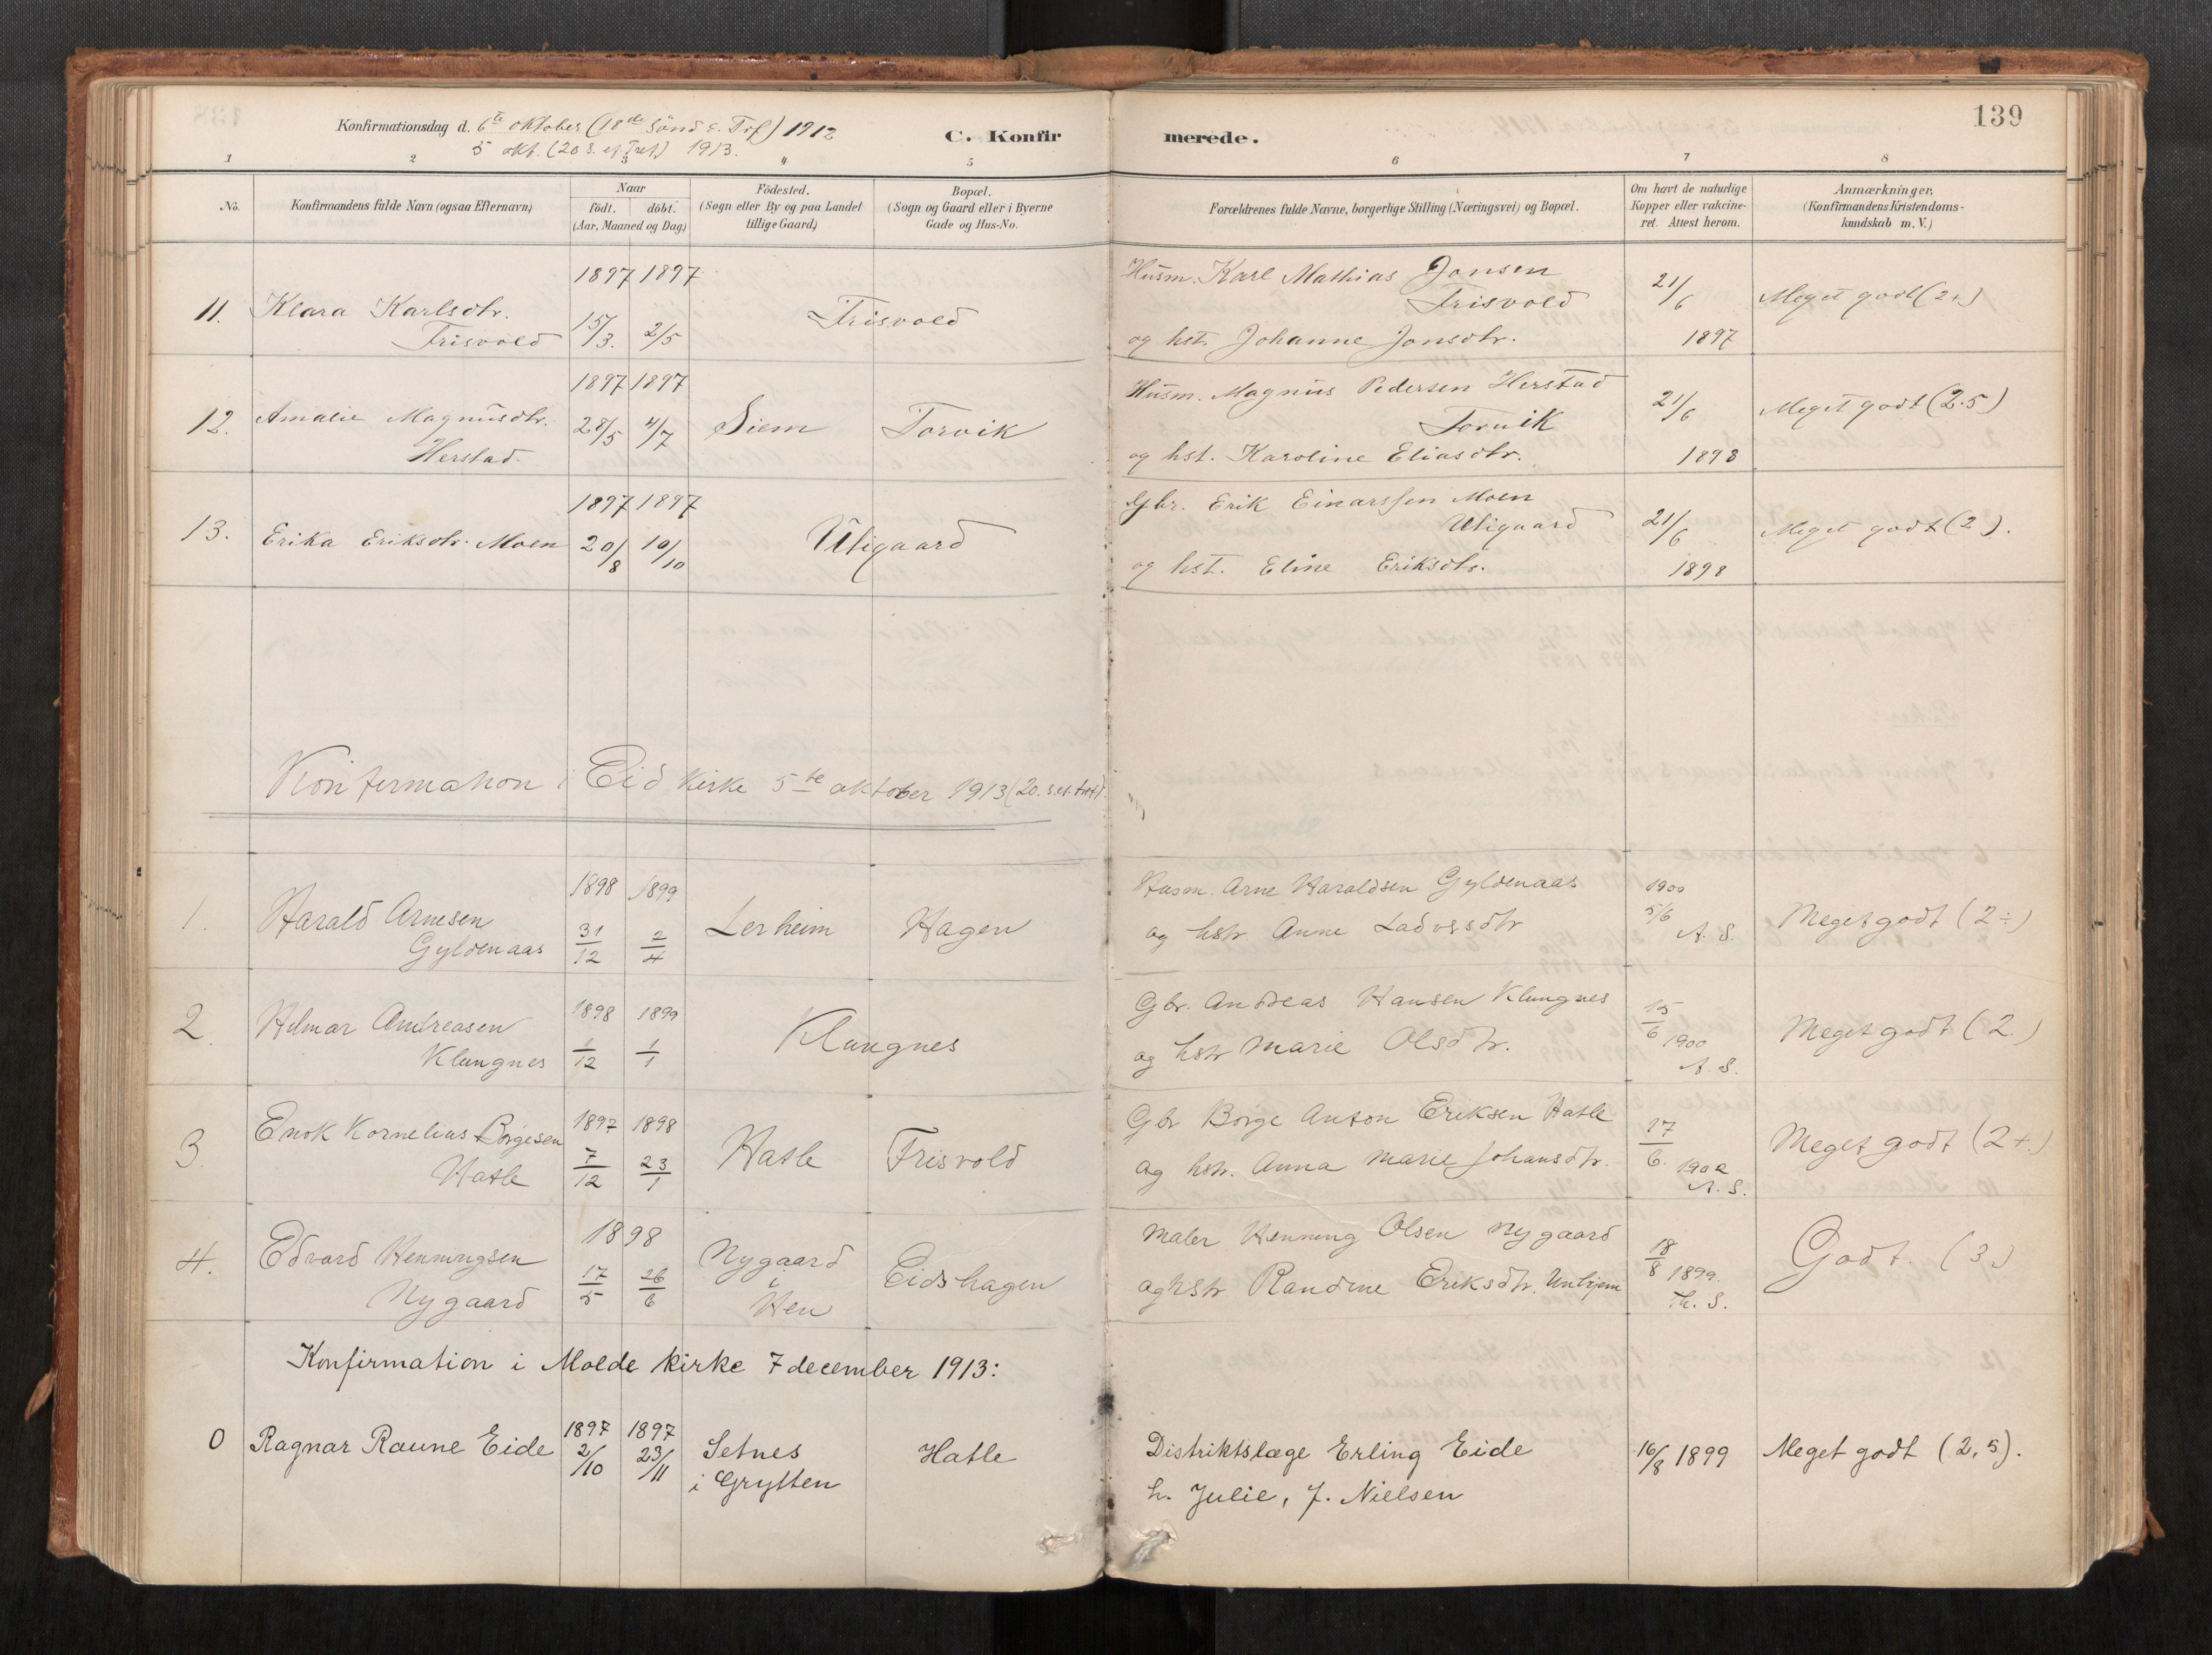 139
Konfirmationsdag d. 6te oktober (18de Sönd e. Tref) 1912
5 okt. (20 S. ef. Tref) 1913.
C. Konfirmerede.
1 2 3 4 5 6 7 8
No.
Konfirmandens fulde Navn (ogsaa Efternavn)
Naar
födt. döbt.
(Aar, Maaned og Dag)
Födested.
(Sogn eller By og paa Landet
tillige Gaard)
Bopæl.
(Sogn og Gaard eller i Byerne
Gade og Hus-No.
Forældrenes fulde Navne, borgerlige Stilling (Næringsvei) og Bopæl.
Om havt de naturlige
Kopper eller vakcine-
ret. Attest herom.
Anmærkninger.
(Konfirmandens Kristendoms-
kundskab m. V.)
1897 1897
11. Klara Karlsdtr.
Frisvold
15/3. 2/5
Frisvold
Husm. Karl Mathias Jonsen
Frisvold
og hst. Johanne Jonsdtr.
21/6
1897
Meget godt (2+)
1897 1897
12. Amalie Magnusdtr.
Herstad.
28/5 4/7
Siem
Torvik
Husm. Magnus Pedersen Herstad
Torvik
og hst. Karoline Eliasdtr.
21/6
1898
Meget godt (2.5)
1897 1897
13. Erika Eriksdtr. Moen
20/8 10/10
Utigaard
Gbr. Erik Einarssen Moen
Utigaard
og hst. Eline Eriksdtr.
21/6
1898
Meget godt (2).
Konfirmation i Eid Kirke 5te oktober 1913 (20. s. ef. tref).
1898 1899
1. Harald Arnesen
Gyldenaas
31/12 2/4
Lerheim
Hagen
Husm. Arne Haraldsen Gyldenaas
og hstr. Anne Ladvesdtr
1900
5/6
A. S.
Meget godt (2÷)
1898 1899
2. Hilmar Andreasen
Klungnes
1/12 1/1
Klungnes
Gbr. Andreas Hansen Klungnes
og hstr Marie Olsdtr.
15/6 1900
A. S.
Meget godt (2.)
1897 1898
3. Enok Kornelius Børgesen
Hatle
7/12 23/1
Hatle
Frisvold
Gbr Børge Anton Eriksen Hatle
og hstr. Anna Marie Johansdtr.
17/6. 1902
A. S.
Meget godt (2+)
1898
4. Edvard Henningsen
Nygaard
17/5 26/6
Nygaard
i
Hen
Eidshagen
Maler Henning Olsen Nygaard
og hstr Randine Eriksdtr. Unhjem
18/8 1899.
Th. S.
Godt. (3)
Konfirmation i Molde kirke 7 december 1913:
0 Ragnar Raune Eide
1897 1897
2/10 23/11
Setnes
i Grytten
Hatle
Distriktslæge Erling Eide
h. Julie, f. Nielsen
16/8 1899
Meget godt (2,5).